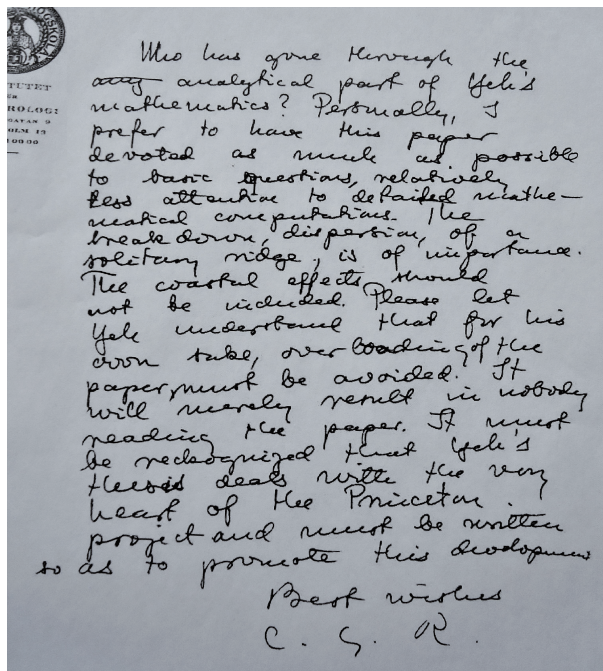 HÖGSKOLA
TUTET
ER
ROLOGI
GATAN 9
OLM 19
Who has gone through the
any analytical part of Yeh's
mathematics? Personally, I
prefer to have this paper
devoted as much as possible
to basic questions, relatively
less attention to detailed mathe-
matical computations. The
breakdown, dispersion, of a
solitary ridge, is of importance.
The coastal effects should
not be included. Please let
Yeh understand that for his
own sake, overloading of the
paper, must be avoided. It
will merely result in nobody
reading the paper. It must
be reckognized that Yeh's
thesis deals with the very
heart of the Princeton
project and must be written
so as to promote this development
Best wishes
C. G. R.